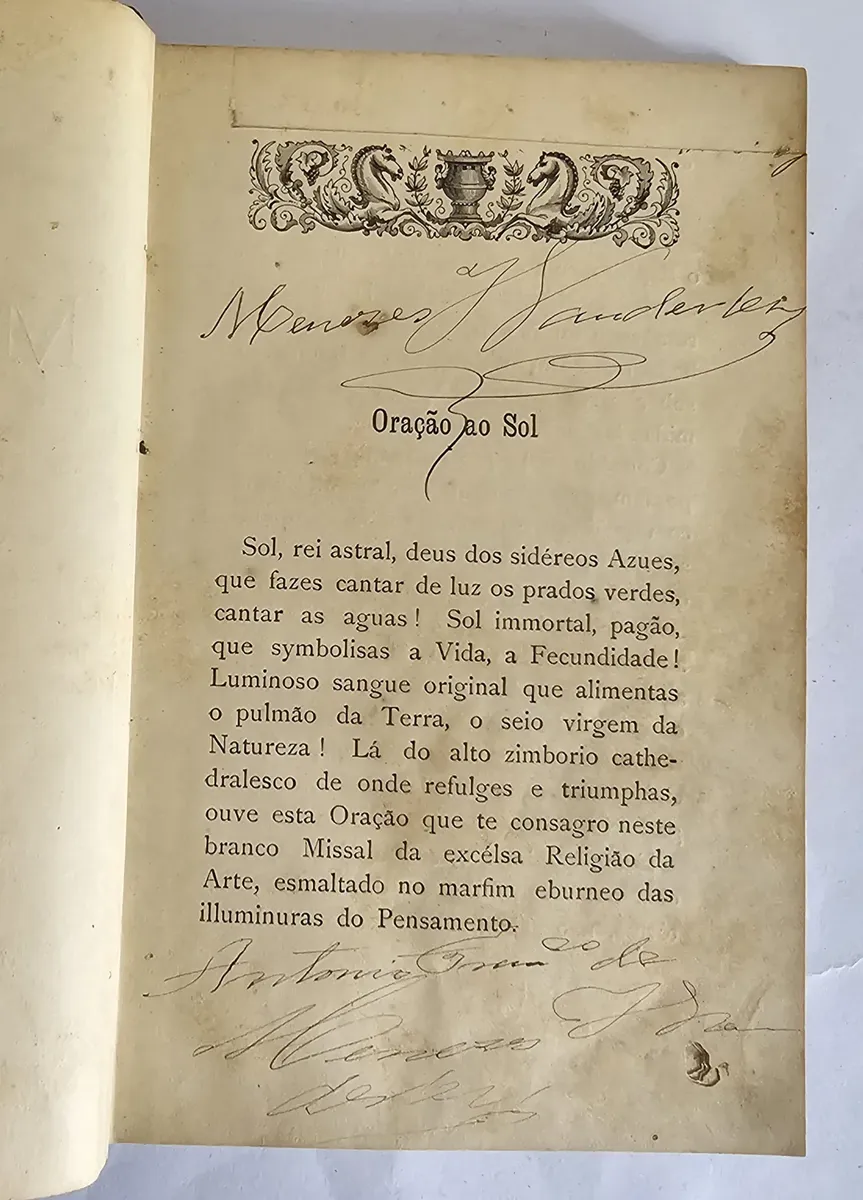 Menezes Vanderley
Oração ao Sol
Sol, rei astral, deus dos sidéreos Azues,
que fazes cantar de luz os prados verdes,
cantar as aguas ! Sol immortal, pagão,
que symbolisas a Vida, a Fecundidade !
Luminoso sangue original que alimentas
o pulmão da Terra, o seio virgem da
Natureza ! Lá do alto zimborio cathe-
dralesco de onde refulges e triumphas,
ouve esta Oração que te consagro neste
branco Missal da excélsa Religião da
Arte, esmaltado no marfim eburneo das
illuminuras do Pensamento.
Antonio de
Menezes